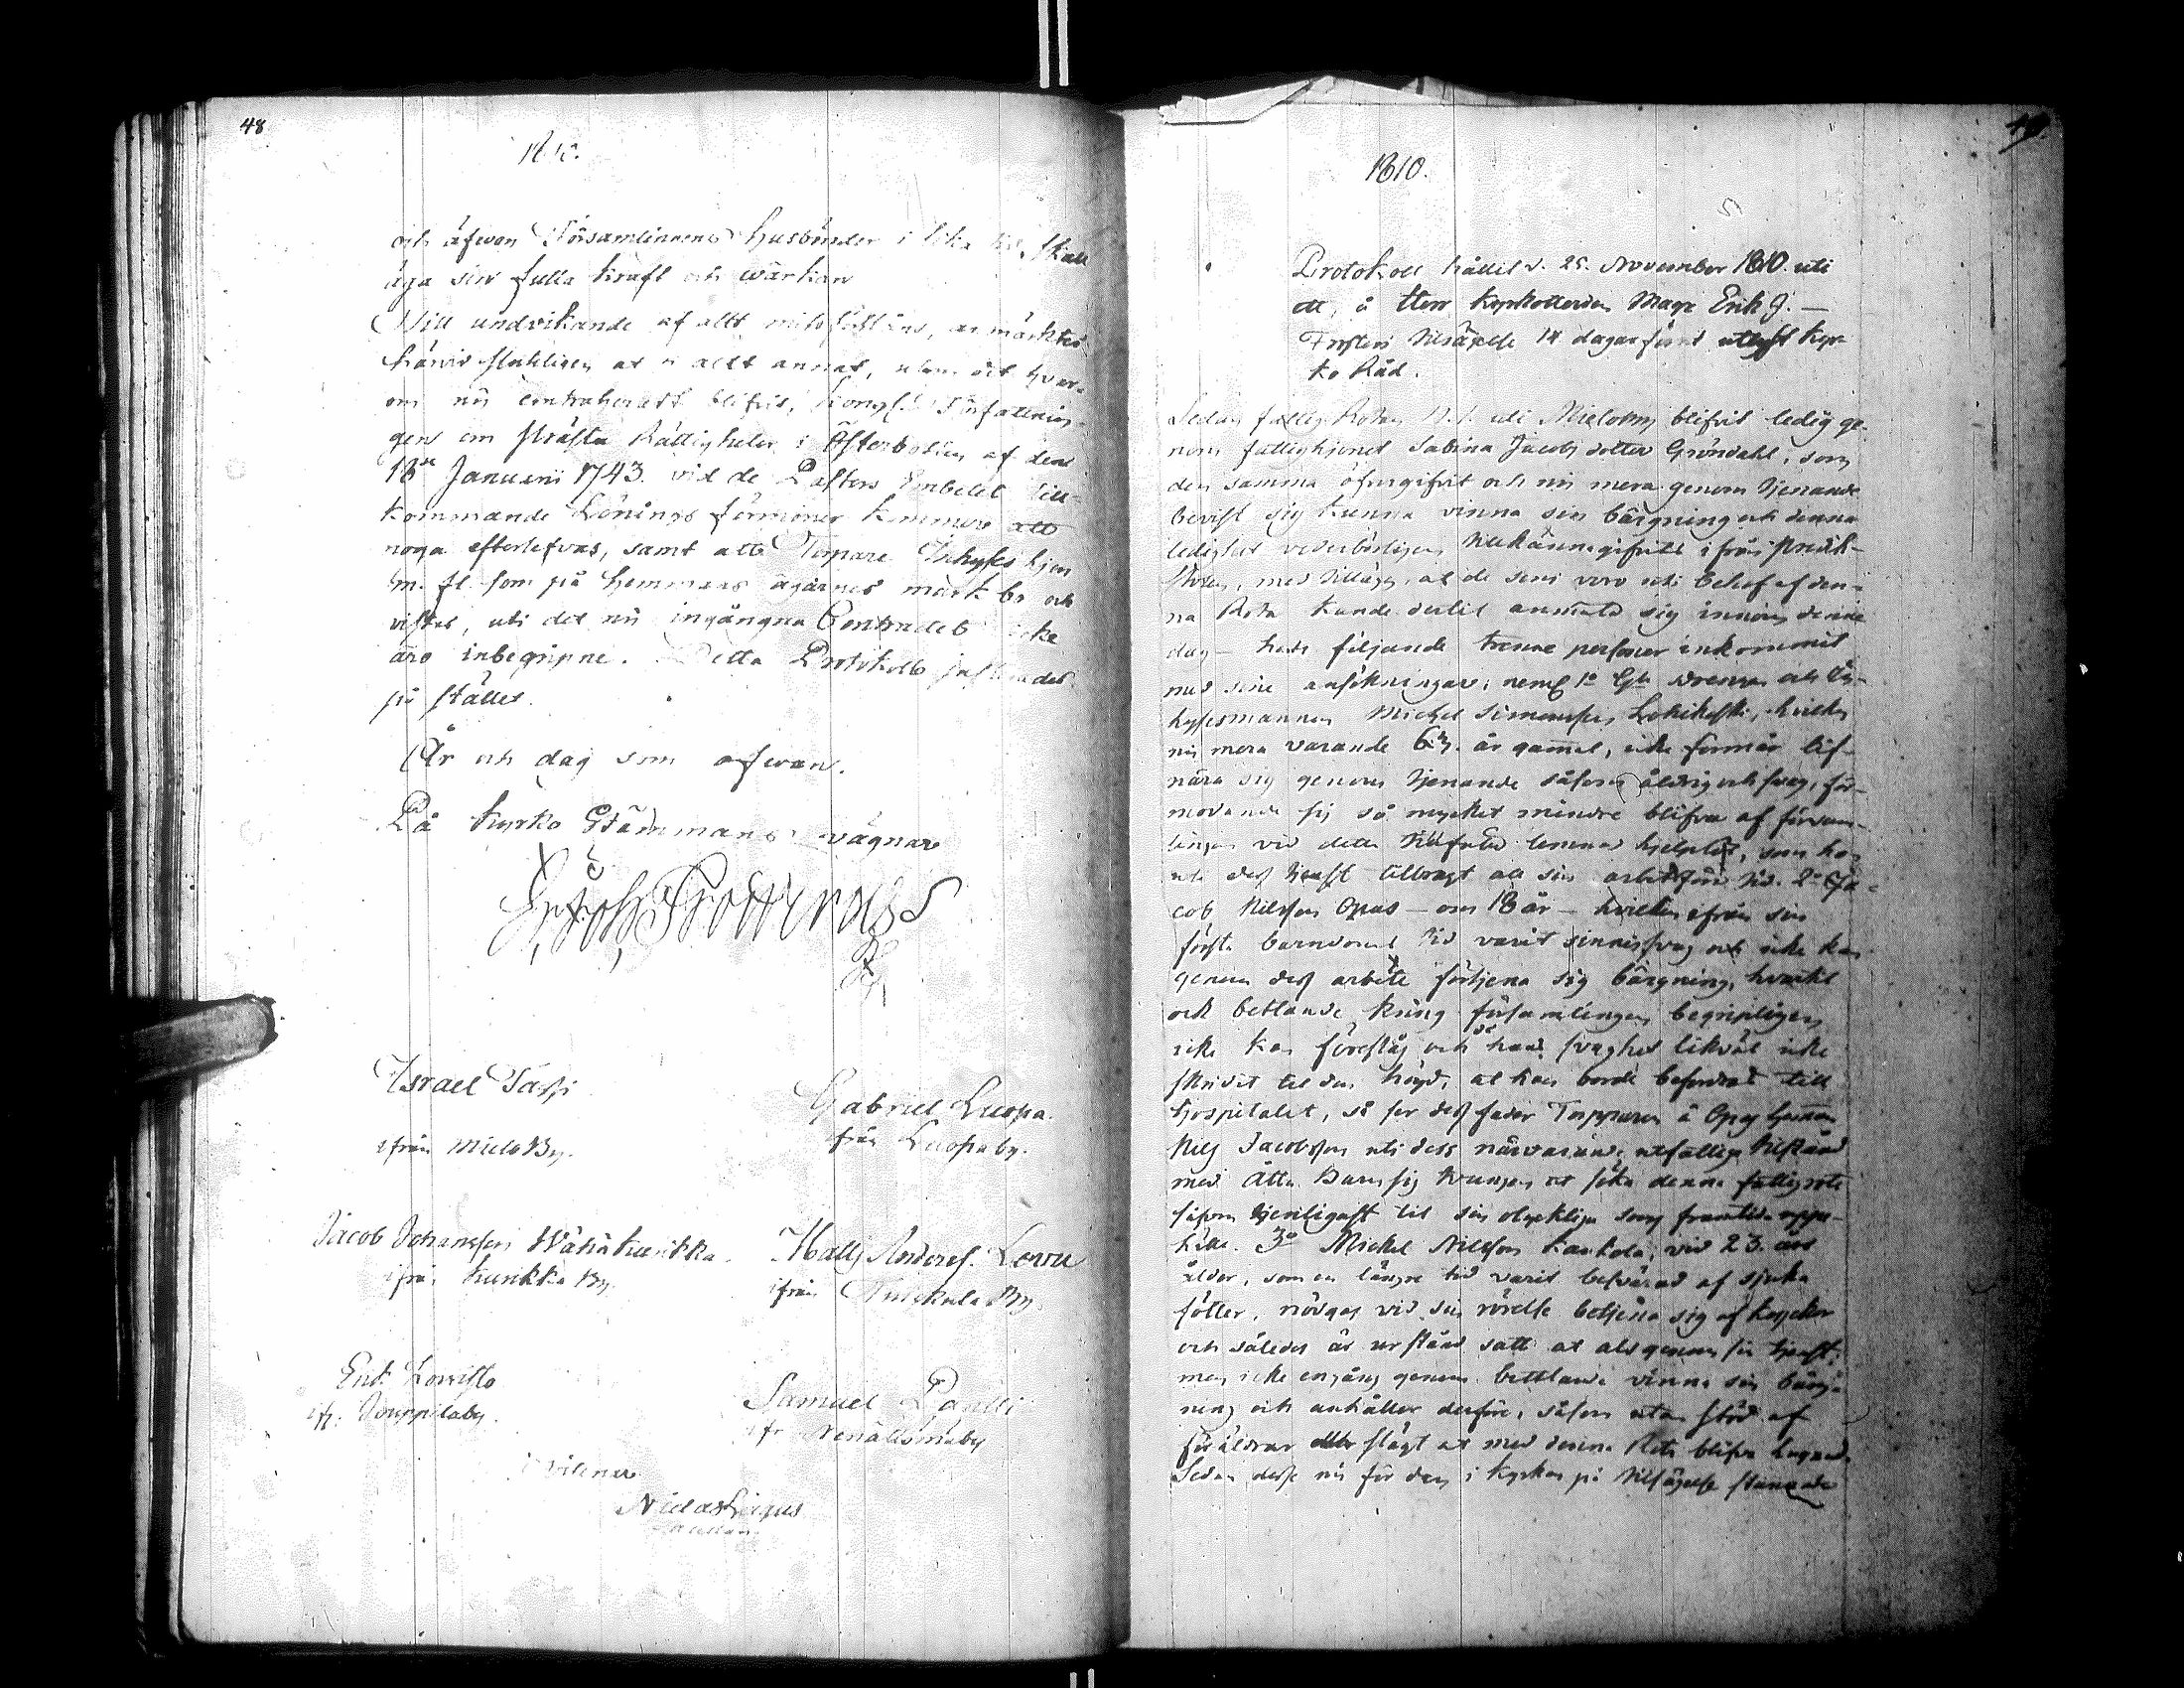 48
1810.
och äfwen Församlinnens husbönder i lika tid, skall
äga sin fulla kraft och wärkan
Till undvikande af allt missförstånd, anmärktes
härvid at i allt annat, utom det hvar-
om nu contraherats blifvit, Kongl. Författnin-
gen om Prästa Rättigheter i Österbotten af den
18de Januarii 1743. vid de Pastors Embetet till-
kommande Lönings förmoner kommer att
noga efterlefvas, samt att Torpare Inhyses hjon
m. fl. som på Hemmans ägarnes mark bo och
vistas, uti det nu ingångna Contractet icke
äro inbegripne. Detta Protokoll justerades
på stället.
År och dag som ofwan.
På Kyrko Stämmans vägnar
Israel Sassi
ifrån Mieto By.
Gabriel Luopa.
från Luopa by.
Jacob Johansson Wähä Kurikka
ifrån Kurikka By.
Matts Anders. Levu
ifrån By.
Erik
ifr. Jouppila by.
Samuel Pantti
ifr
vitna
Niclas
1810.
Protokoll hållit d. 25. November 1810. uti
ett, å Herr Kyrkoherden Magr Erik J. —
14 dagar förut utlyst Kyr-
ko Råd.
Sedan fattig Rotan N. 1. uti Mieto by blifvit ledig ge-
nom fattighjonet Sabina Jacobs dotter Gröndahl, som
den samma öfvergifvit och nu mera genom tjenande
bevist sig kunna vinna sin bärgning och denna
ledighet vederbörligen tillkännagifvits ifrån Predik-
stolen, med tillägg, at de som voro uti behof af den-
na Rota kunde dertil anmäla sig innom denne
dag — hade följande trenne personer inkommit
med sine ansökningar; neml. 1o drengen och In-
hysesmannen Michel Simonsson, hvilken
nu mera varande år gammal, icke förmår lif-
nära sig genom tjenande såsom åldrig och svag, för-
modande sig så mycket mindre blifva af försam-
lingen vid detta tillstånd lemnad hjelplös, som han
uti dess tjenst tillbragt all sin arbetsföra tid. 2o Ja-
cob Nilsson Opas — om 18 år — hvilken ifrån sin
första barndoms tid varit sinnessvag och icke kan
genom dess arbete förtjena sig bärgning, hvartil
ock bettlande kring församlingen begripligen
icke kan föreslås och då hans svaghet likväl icke
skridit til den höjd, at han borde befordras till
Hospitalet, så ser dess fader Torpparen å Opas hemman
Nils Jacobsson uti dess närvarande utfattiga tillstånd
med Åtta Barn sig tvungen at söka denna fattig rote
såsom tjenligast til sin olycklige sons framtida uppe-
hälle. 3o Mickel Nilsson Kankola, vid 23. års
ålder, som en längre tid varit besvärad af sjuka
fötter, nödgas vid sin rörelse betjena sig af kryckor
och således är ur stånd satt at als genom sin tjenst,
men icke engång genom bettlande vinna sin bärg-
ning och anhåller derföre, såsom utan stöd af
föräldrar eller slägt at med denna Rota blifva hugnad.
Sedan desse nu för den i Kyrkan på tillsägelse stannade